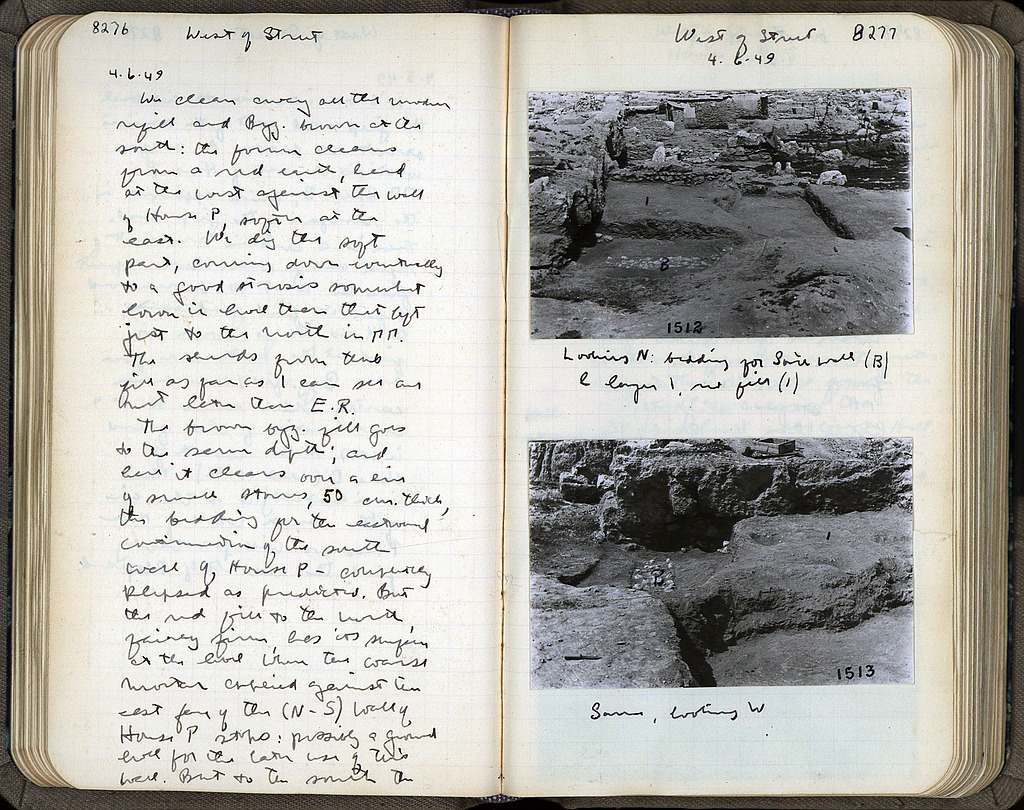 8276 West of Street
4·6·49
We clean away all the modern
refill and Byz. brown at the
south: the former cleans
from a red unit, hard
at the west against the wall
of House P, softer at the
east. We dig the soft
part, coming down eventually
to a good strosis somewhat
lower in level than that left
just to the north in
The sherds from this
fill as far as I can see are
not later than E.R.
The brown byz. fill goes
to the same depth; and
here it cleans over a
of small stones, 50 cm. thick,
the bedding for the eastward
continuation of the south
wall of House P – completely
as predicted. But
the red fill to the north,
fairly firm has its surface
at the level when the coarse
mortar against the
east face of the (N-S) wall of
House P stops: possibly a ground
level for the later use of this
wall. But to the south the
West of Street 8277
4·6·49
1512
Looking N: bedding for South wall (B)
layer 1, red fill (1)
1513
Same, looking W